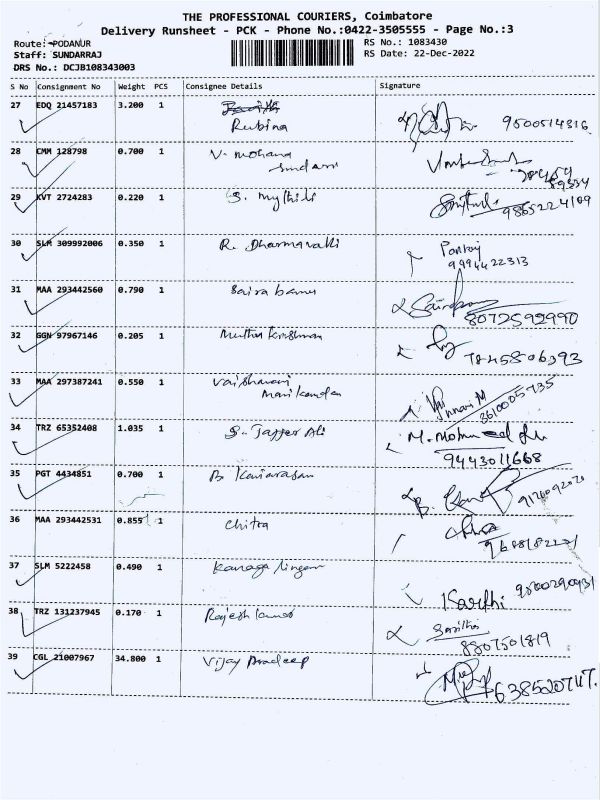 THE PROFESSIONAL COURIERS, Coimbatore
Delivery Runsheet - PCK - Phone No.:0422-3505555 - Page No.:3
Route: PODANUR RS No.: 1083430
Staff: SUNDARRAJ RS Date: 22-Dec-2022
DRS No.: DCJB108343003
S No Consignment No Weight PCS Consignee Details Signature
27 EDQ 21457183 3.200 1
Rubina 9500514316
28 CMM 128798 0.700 1 V. mohana
sundari
29 KVT 2724283 0.220 1 S. Mythili
9865224109
30 SLM 309992006 0.350 1 R. Dharmavalli
9994422313
31 MAA 293442560 0.790 1 Saira banu
8072592990
32 GGN 97967146 0.205 1 Muthu krishnan
7845806393
33 MAA 297387241 0.550 1 Vaishnavi
Manikandan
34 TRZ 65352408 1.035 1 S. Jaffer Ali
9443011668
35 PGT 4434851 0.700 1
36 MAA 293442531 0.855 1 Chitra
37 SLM 5222458 0.490 1 Kanaga lingam
Karthi
38 TRZ 131237945 0.170 1 Rajesh kumar
8807501819
39 CGL 21007967 34.800 1 Vijay Pradeep
638520747